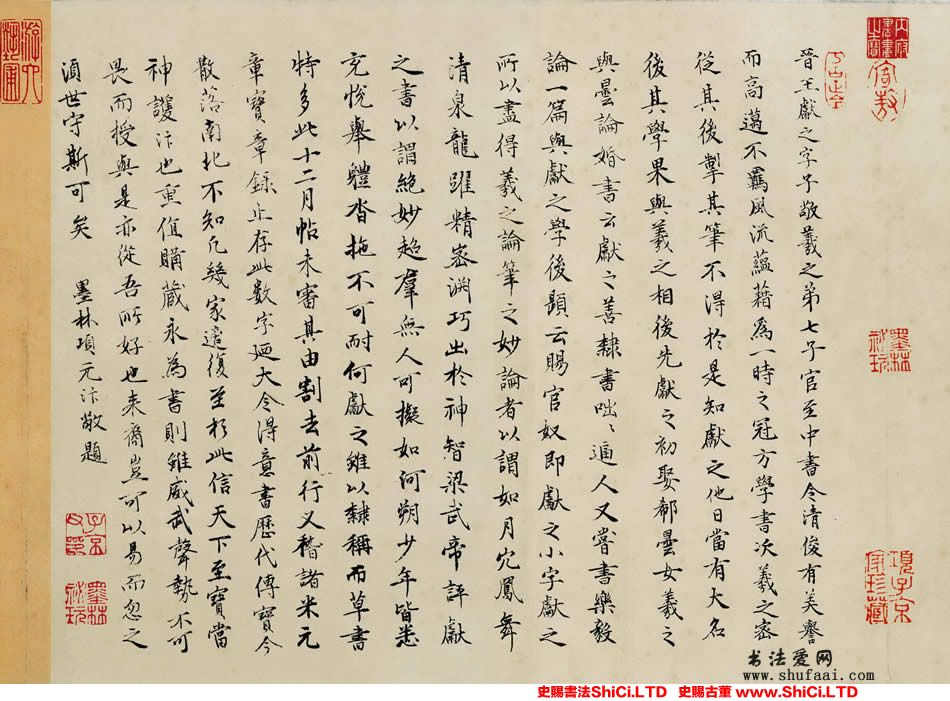 晉王獻之字子敬羲之第七子官至中書令清俊有美譽
而高邁不羈風流蘊藉為一時之冠方學書次羲之密
從其後掣其筆不得於是知獻之他日當有大名
後其學果與羲之相後先獻之初娶郗曇女羲之
與曇論婚書云獻之善隸書咄咄逼人又嘗書樂毅
論一篇與獻之學後題云賜官奴即獻之小字獻之
所以盡得羲之論筆之妙論者以謂如月穴鳳舞
清泉龍躍精密淵巧出於神智梁武帝評獻
之書以謂絕妙超群無人可擬如河朔少年皆悉
充悅舉體沓拖不可耐何獻之雖以隸稱而草書
特多此十二月帖未審其由割去前行又稽諸米元
章寶章錄止存此數字廼大令得意書歷代傳寶今
散落南北不知凡幾家適復至於此信天下至寶當
神護汴也重值購藏永為書則雖威武聲勢不可
畏而授與是亦從吾所好也来裔豈可以易而忽之
須世守斯可矣 墨林項元汴敬題
項子京家珍藏
墨林祕玩
子京父印
墨林祕玩
书法爱网
www.shufaai.com
史賜書法ShiCi.LTD 史賜古董 www.ShiCi.LTD